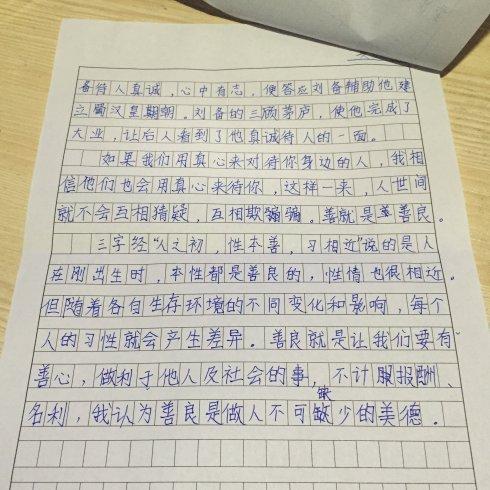 备待人真诚，心中有志，便答应刘备辅助他建
立蜀汉皇朝。刘备的三顾茅庐，使他完成了
大业，让后人看到了他真诚待人的一面。
如果我们用真心来对待你身边的人，我相
信他们也会用真心来待你，这样一来，人世间
就不会互相猜疑，互相欺骗。善就是善良。
三字经“人之初，性本善，习相近”说的是人
在刚出生时，本性都是善良的，性情也很相近。
但随着各自生存环境的不同变化和影响，每个
人的习性就会产生差异。善良就是让我们要有
善心，做利于他人及社会的事，不计报酬、
名利，我认为善良是做人不可缺少的美德。